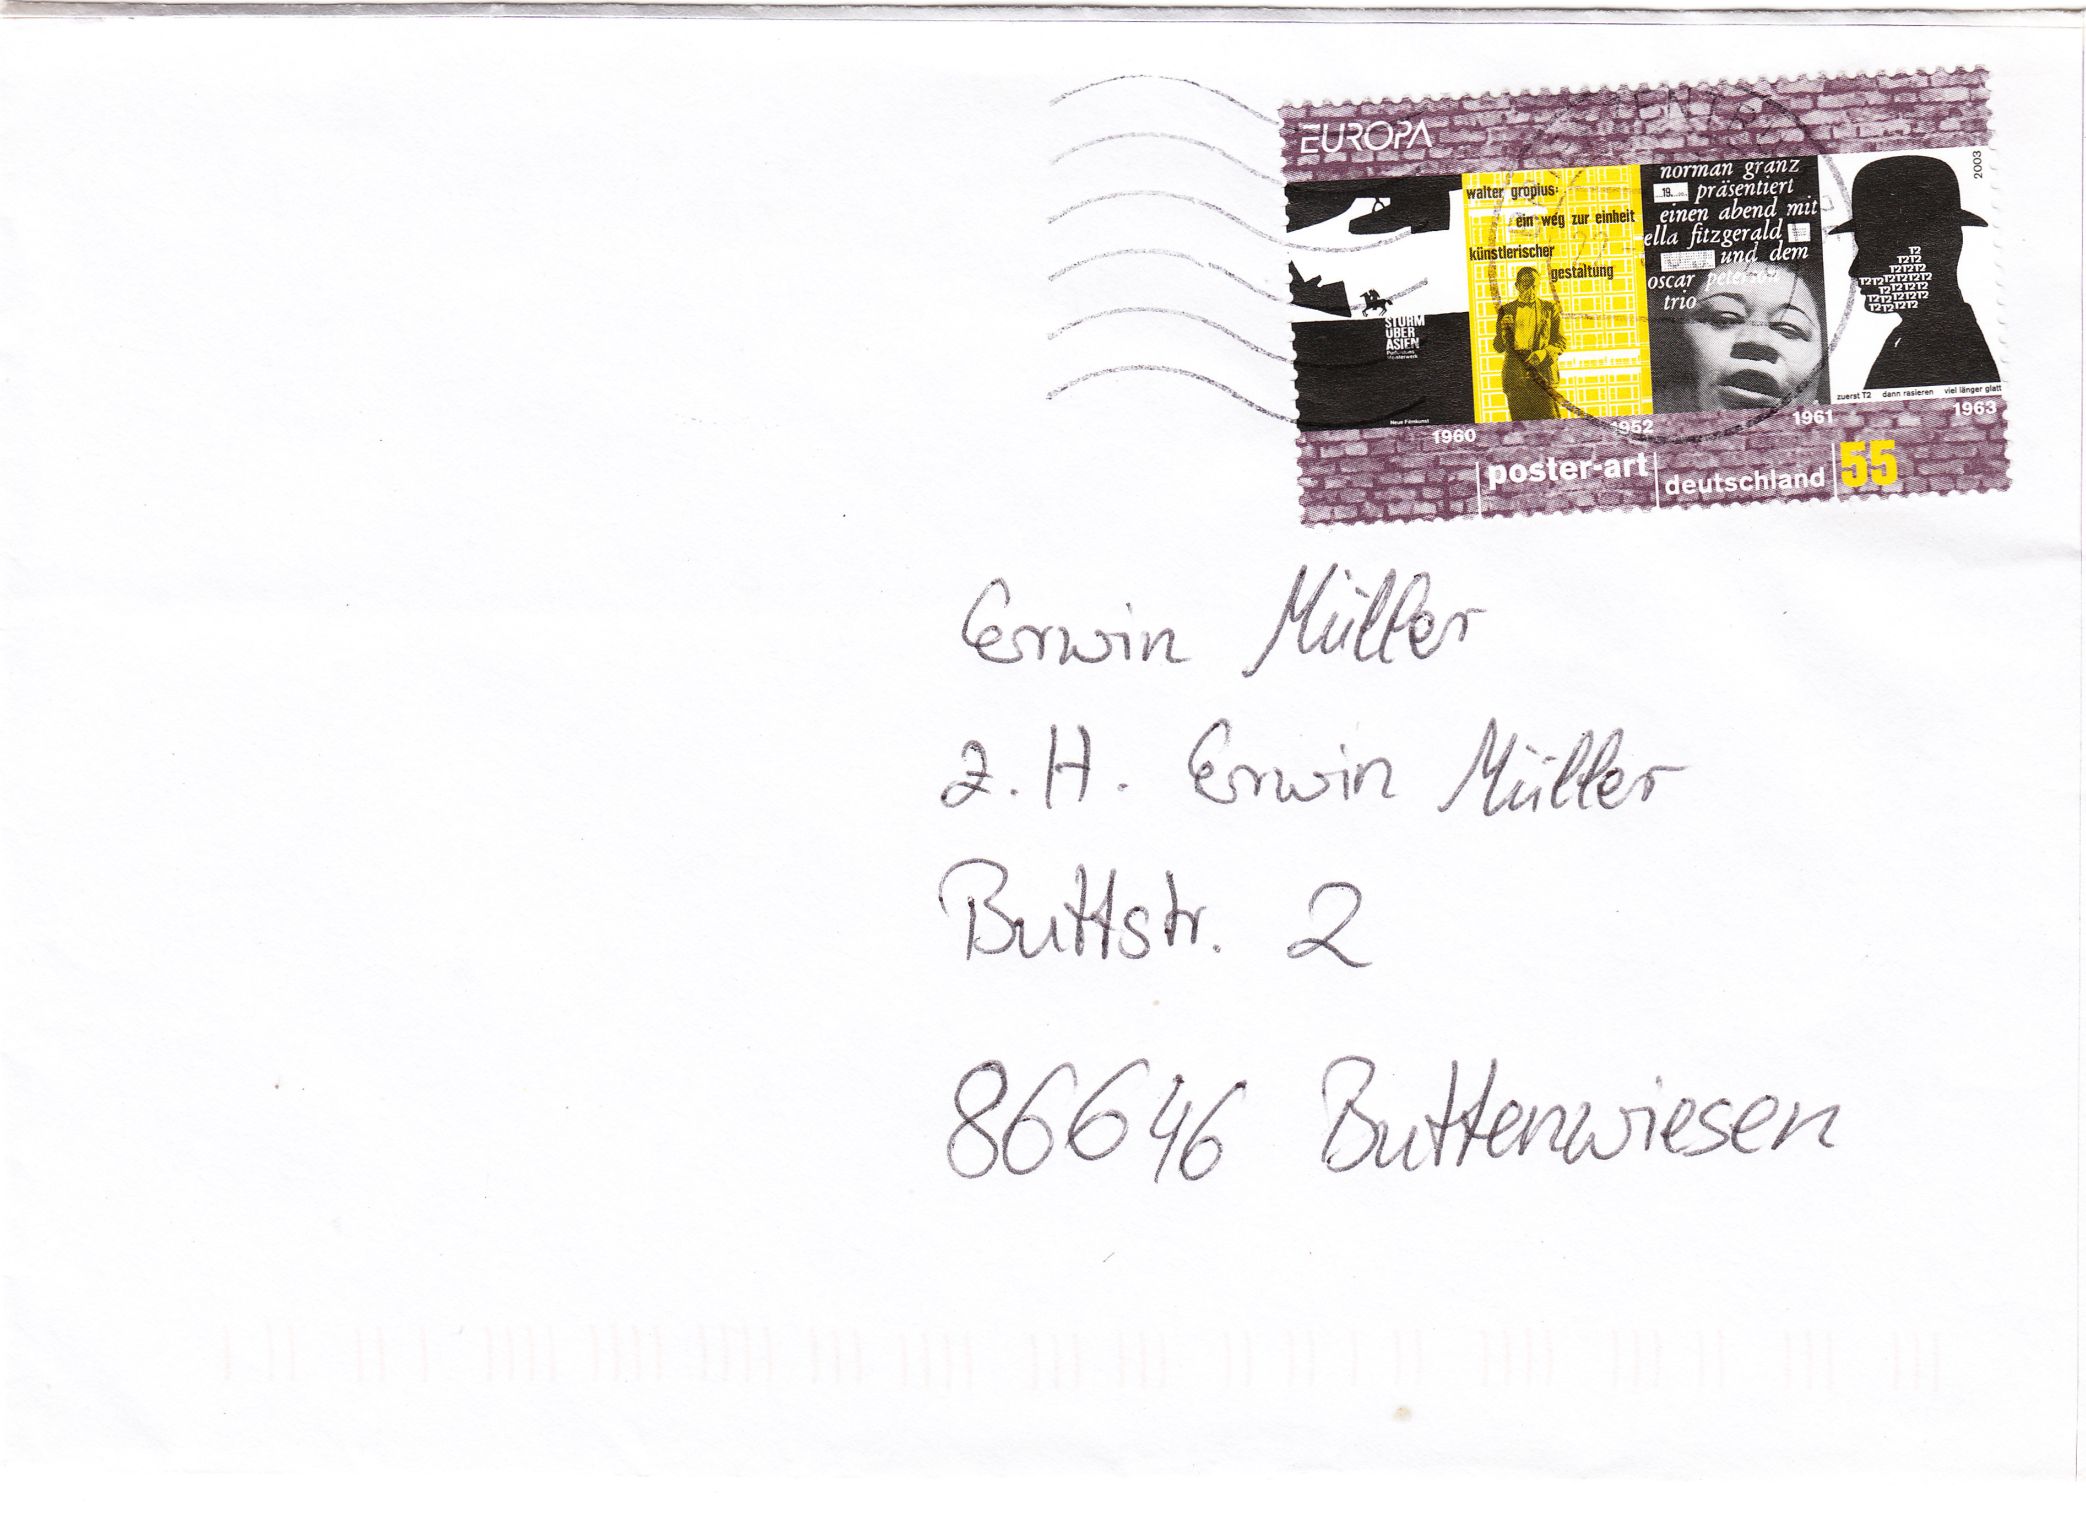 EUROPA
2003
STURM
ÜBER
ASIEN
Neue Filmkunst
walter gropius:
ein weg zur einheit
künstlerischer
gestaltung
norman granz
19. präsentiert
einen abend mit
ella fitzgerald
und dem
oscar peterson
trio
T2
T2T2
T2T2T2
T2T2T2T2T2T2
T2T2T2T2
T2T2T2T2T2
T2T2T2T2
zuerst T2 dann rasieren viel länger glatt
1960
1952
1961
1963
poster-art
deutschland
55
Erwin Müller
z.H. Erwin Müller
Buttstr. 2
86646 Buttenwiesen